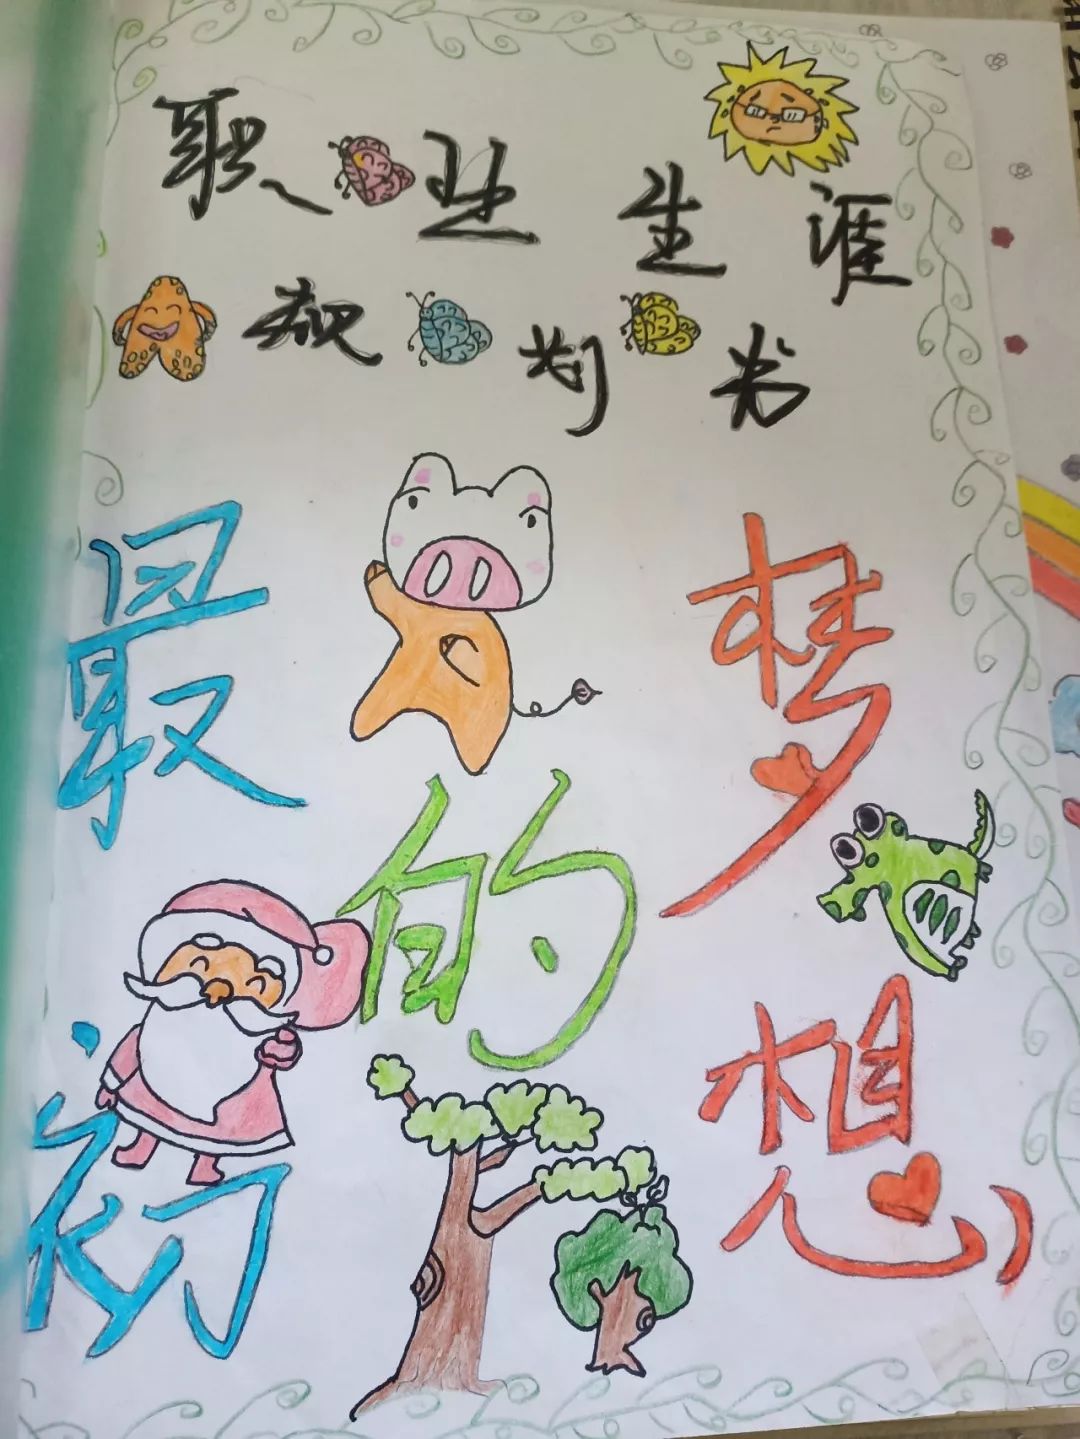 职业生涯
规划书
最初
的
梦想